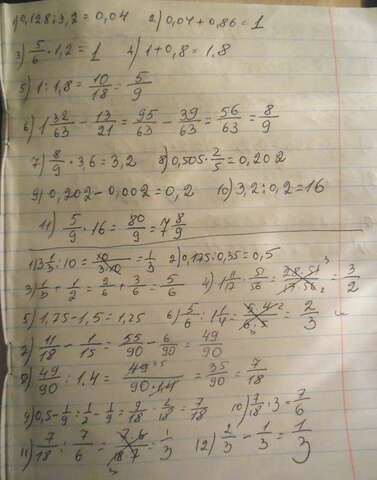 1) 0,128 : 3,2 = 0,04 2) 0,04 + 0,86 = 1
3) 5/6 · 1,2 = 1 4) 1 + 0,8 = 1,8
5) 1 : 1,8 = 10/18 = 5/9
6) 1 32/63 - 13/21 = 95/63 - 39/63 = 56/63 = 8/9
7) 8/9 · 3,6 = 3,2 8) 0,505 · 2/5 = 0,202
9) 0,202 - 0,002 = 0,2 10) 3,2 : 0,2 = 16
11) 5/9 · 16 = 80/9 = 7 8/9
1) 3 1/3 : 10 = 10/3·10 = 1/3 2) 0,175 : 0,35 = 0,5
3) 1/3 + 1/2 = 2/6 + 3/6 = 5/6 4) 1 11/17 · 51/56 = 28·51/17·56 = 3/2
5) 1,75 - 1,5 = 1,25 6) 5/6 : 1 1/4 = 5·4/6·5 = 2/3
7) 11/18 - 1/15 = 55/90 - 6/90 = 49/90
8) 49/90 : 1,4 = 49/90·1,4 = 35/90 = 7/18
9) 0,5 - 1/9 = 1/2 - 1/9 = 9/18 - 2/18 = 7/18 10) 7/18 : 3 = 7/6
11) 7/18 : 7/6 = 7·6/18·7 = 1/3 12) 2/3 - 1/3 = 1/3